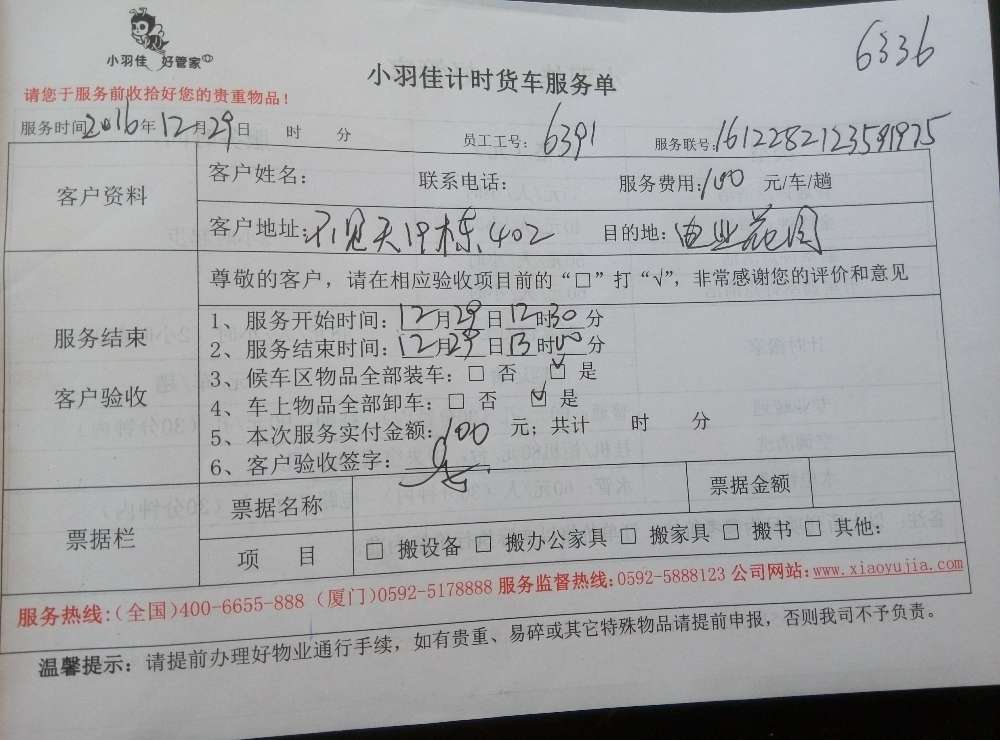 6336
小羽佳 好管家
小羽佳计时货车服务单
请您于服务前收拾好您的贵重物品！
服务时间2016年12月29日 时 分 员工工号：6391 服务联号：1612282123591975
客户资料
客户姓名： 联系电话： 服务费用：100 元/车/趟
客户地址：不见天19栋402 目的地：由业花园
服务结束
客户验收
尊敬的客户，请在相应验收项目前的“□”打“√”，非常感谢您的评价和意见
1、服务开始时间：12月29日12时30分
2、服务结束时间：12月29日13时00分
3、候车区物品全部装车：□ 否 ☑ 是
4、车上物品全部卸车：□ 否 ☑ 是
5、本次服务实付金额：100 元；共计 时 分
6、客户验收签字：
票据栏
票据名称 票据金额
项 目 □ 搬设备 □ 搬办公家具 □ 搬家具 □ 搬书 □ 其他：
服务热线：（全国）400-6655-888 （厦门）0592-5178888 服务监督热线：0592-5888123 公司网站：www.xiaoyujia.com
温馨提示：请提前办理好物业通行手续，如有贵重、易碎或其它特殊物品请提前申报，否则我司不予负责。